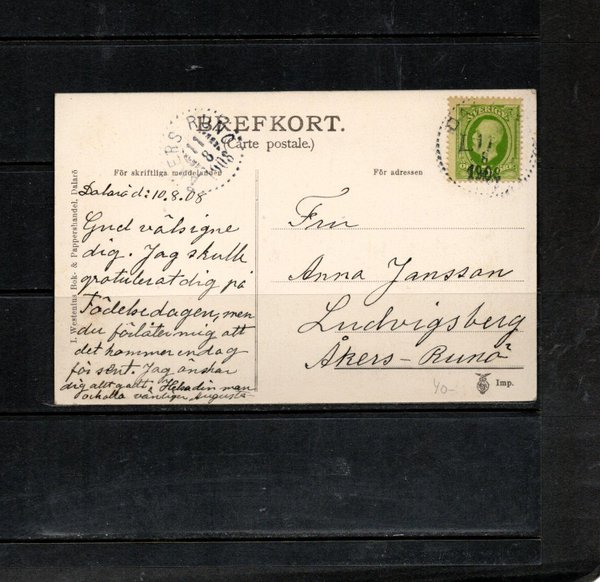 BREFKORT.
(Carte postale.)
För skriftliga meddelanden
För adressen
ÅKERS RUNÖ
11
8
1908
SVERIGE
11
8
1908
I. Westenius Bok- & Pappershandel, Dalarö
Dalarö d: 10.8.08
Gud välsigne
dig. Jag skulle
gratulerat dig på
Födelsedagen, men
du förlåter mig att
det kommer en dag
för sent. Jag önskar
dig allt gott. Helsa din man
och alla vänliger Augusta
Fru
Anna Jansson
Ludvigsberg
Åkers-Runö
40-
Imp.